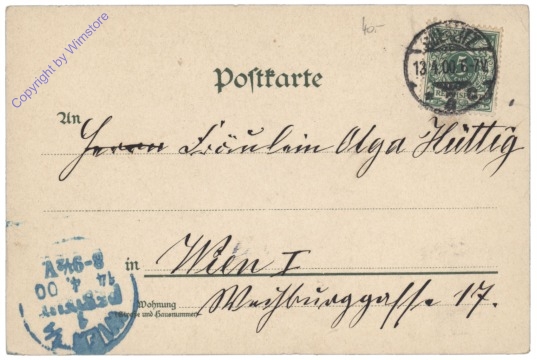 Copyright by Winstore
40.-
Postkarte
13.4.00
5
An
Herrn Fräulein Olga Hüttig
in Wien I
Wohnung
(Straße und Hausnummer)
Weihburggasse 17.
WIEN
14 4. 00
8-9½V